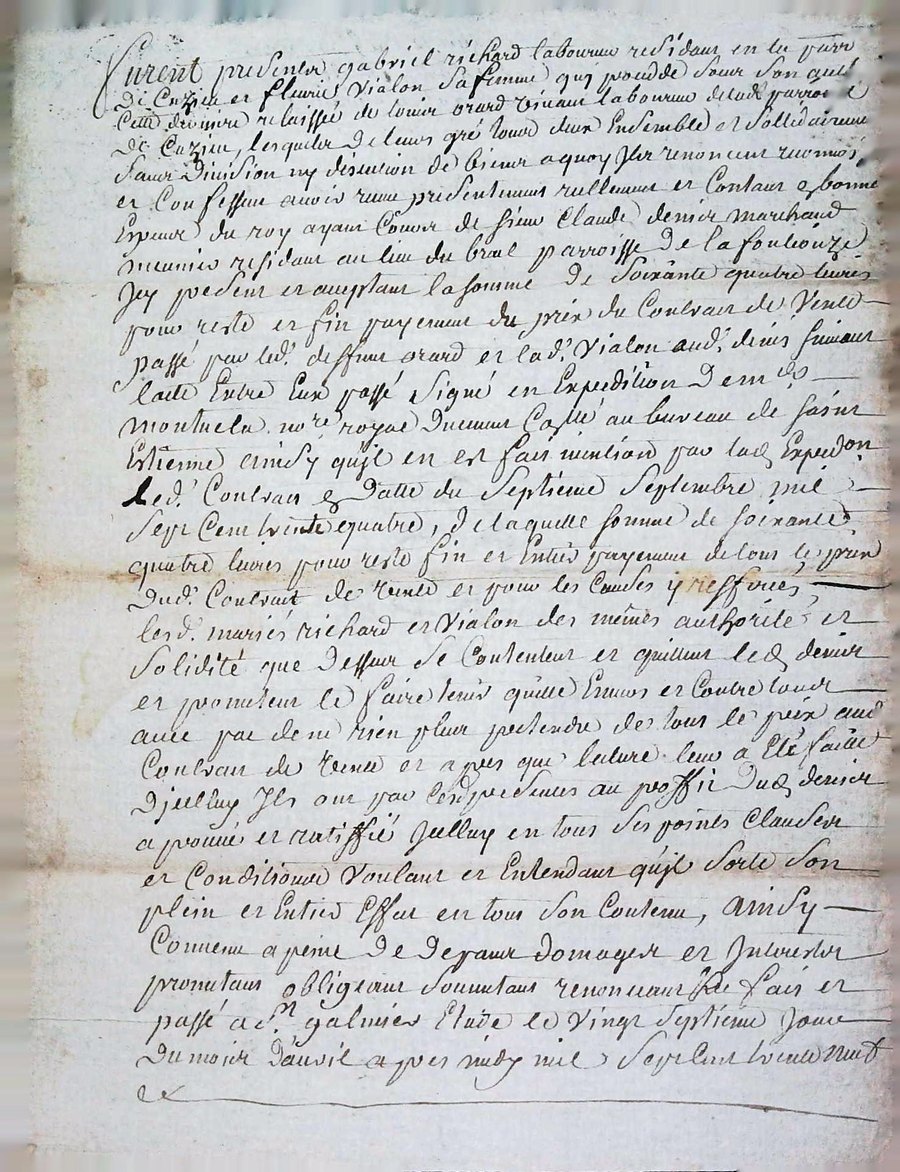 furent presents gabriel richard laboureur residant en la parr
De Cuzieu et fleurie Vialon sa femme qui procedde sous son auth
Cette derniere relaissée de louis orard vivant laboureur de lad. parroisse
De Cuzieu, lesquels de leurs gré tous deux Ensemble et sollidairement
sans Division ny discution de biens a quoy Ils renoncent reconnois
et Confessent avoir receu presentement reellement et Contant & bonne
Espece du roy ayant Cours de sieur Claude denis marchand
meunier residant au lieu du bral parroisse De la fouliouze
Icy present et acceptant la somme de Soixante quatre livres
pour reste et fin payement du prix du Contract de Vente
passé par led. deffunt orard et lad. Vialon aud. denis suivant
lacte Entre Eux passé signé en Expedition De me
montuela nore. royal Duement Collé au bureau de saint
Estienne ainsy qu'il en est fait mention par lad. Expedon
led. Contract & Datte du Septieme Septembre mil
Sept Cent trente quatre, De laquelle somme de soixante
quatre livres pour reste fin et Entier payement de tous le prix
Dud. Contract de vente et pour les Causes y ressorés
lesd. mariés richard et Vialon des mêmes authorité et
solidité que Dessus se Contentent et quittent led. denis
et promettent le faire tenir quitte Envers et Contre tous
avec pac de ne rien plus pretendre de tous le prix aud
Contract de Vente et apres que lecture leur a Eté faitte
D'jcelluy Ils ont par Cesd. presentes au proffit Dud. denis
aprouvé et ratiffié Jcelluy en tous ses points Clauses
et Conditions Voulant et Entendant qu'jl sorte son
plein et Entier Effet en tous son Contenu, ainsy
Convenu a peine De Depans Domages et Jnterests
promettans obligeans soumettans renonceans &c fait et
passé a St. galmier Etude le Vingt Septieme Jour
Du mois D'avril apres midy mil Sept Cent trente neuf
&c